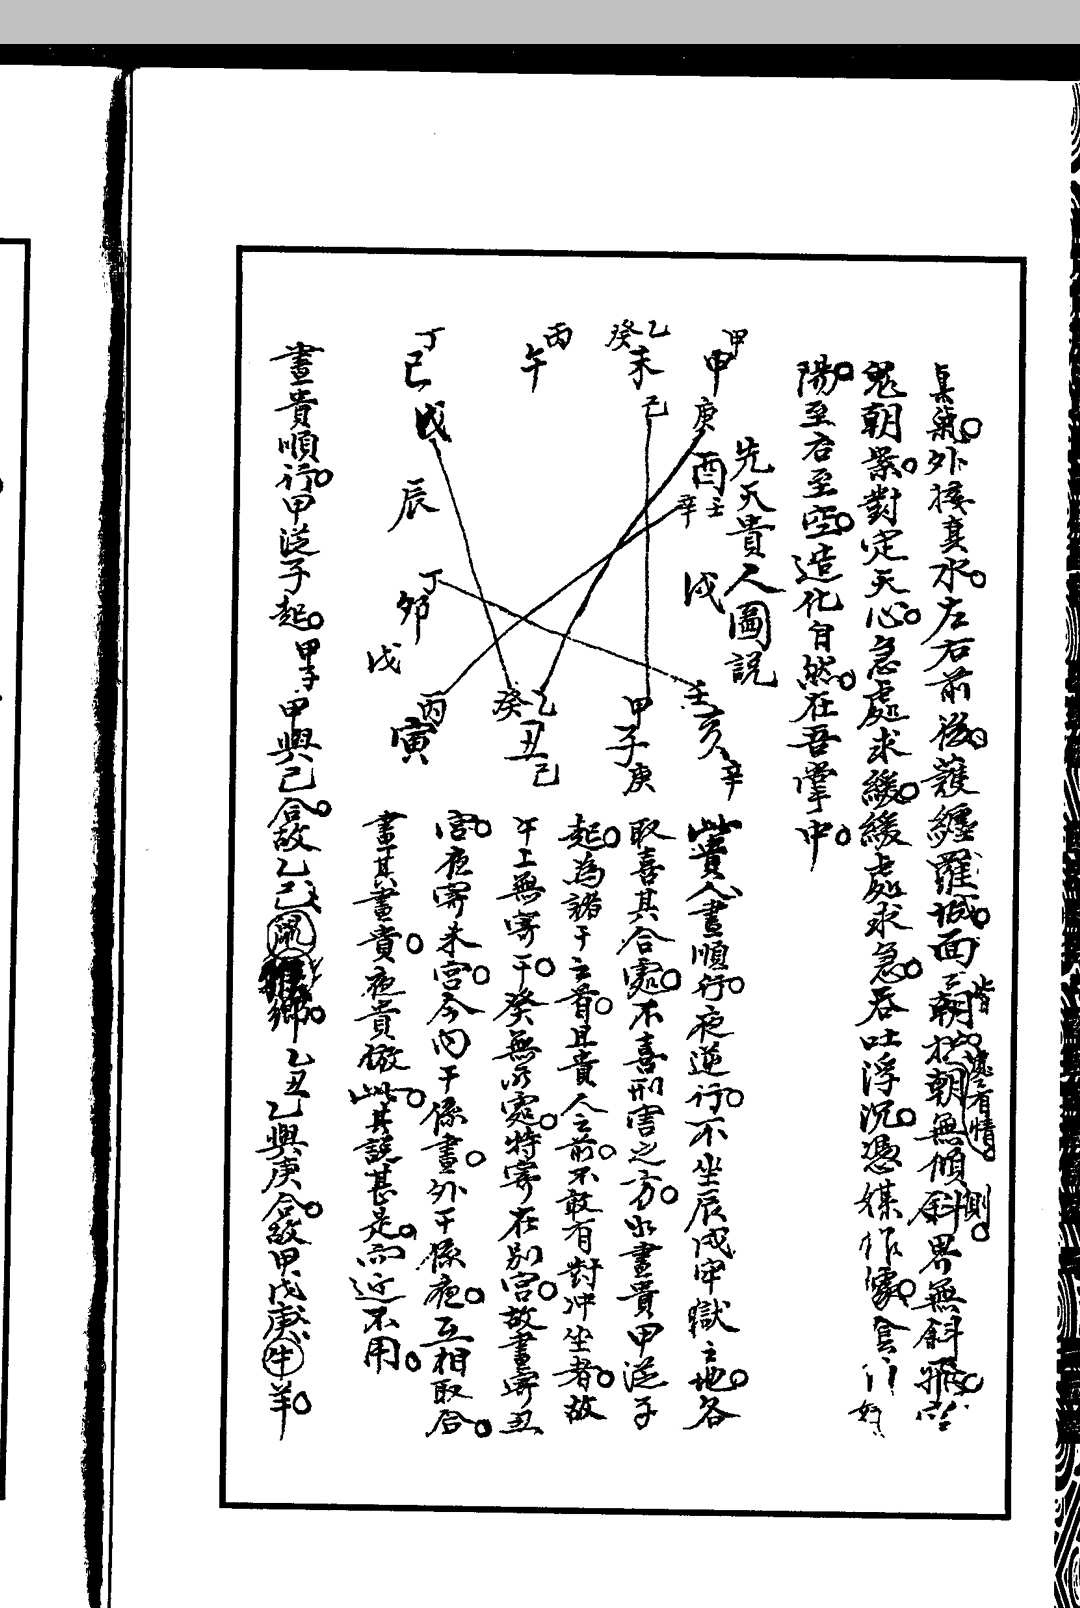 真氣外接真水左右前後護纏羅城面面朝拱朝無傾斜界無斜飛
皆塊有情
側
鬼朝業對定天心急處求緩緩處求急吞吐浮沉憑媒作
陽至右至空造化自然在吾掌中
先天貴人圖説
甲申
庚酉
辛壬
戌
乙癸未己
丙午
丁巳戊
辰
丁卯戊
丙寅
乙癸丑己
甲子庚
壬亥辛
此貴人晝順行夜逆行不坐辰戌牢獄之地各
取喜其合處不喜刑害之方也晝貴甲從子
起為諸干之首且貴人之前不敢有對冲坐者故
午上無寄干癸無所處特寄在別宮故晝寄丑
宮夜寄未宮合內干係晝外干係夜互相取合
晝其晝貴夜貴倣此其説甚是而近不用
晝貴順行甲從子起甲子甲與己合故乙己鼠鄉乙丑乙與庚合故甲戊庚牛羊